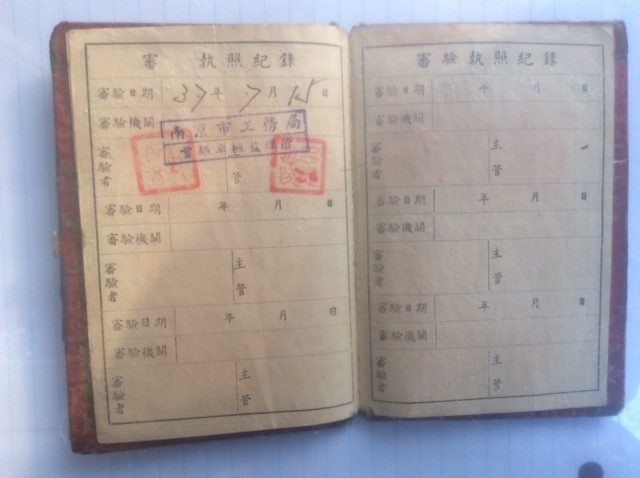 審 執照紀錄
審驗日期 37年 7月 15日
審驗機關
南京市工務局
審驗者
管
審驗日期 年 月 日
審驗機關
審驗者 主管
審驗日期 年 月 日
審驗機關
審驗者 主管
審驗執照紀錄
審驗日期 年 月 日
審驗機關
審驗者 主管
審驗日期 年 月 日
審驗機關
審驗者 主管
審驗日期 年 月 日
審驗機關
審驗者 主管